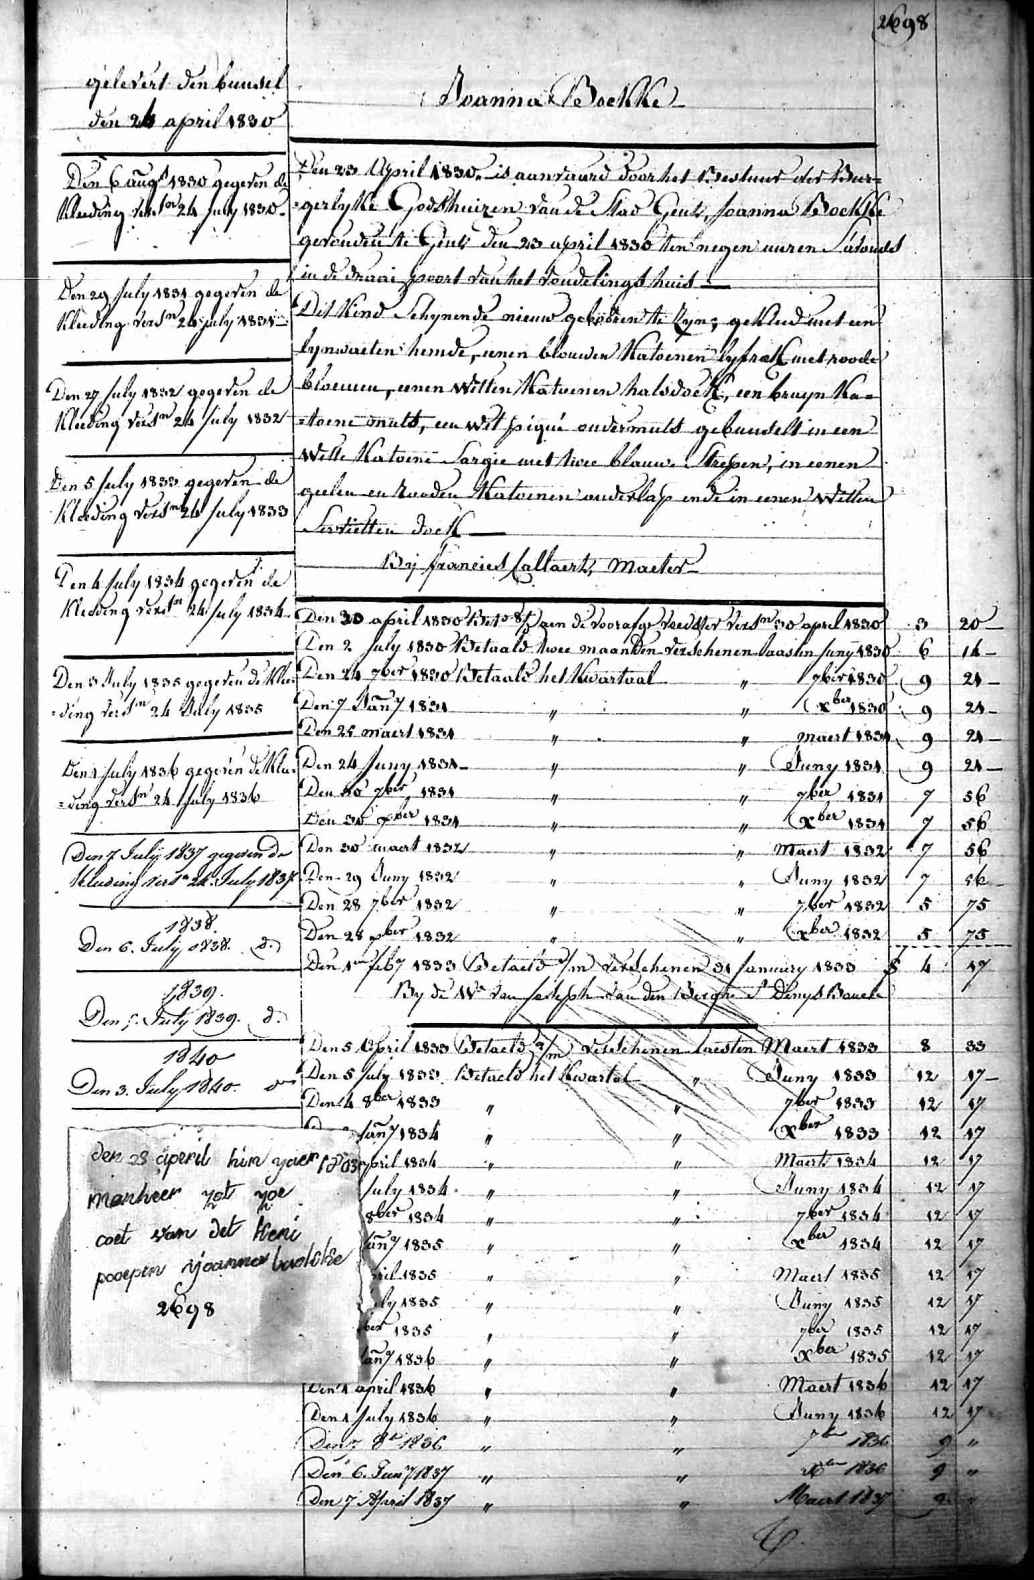 2698
gelevert den bundsel
den 24 april 1830
Joanna Boekke
Den 6 augt 1830 gegeven de
Kleeding versn 24 July 1830
Den 29 July 1831 gegeven de
Kleeding versn 24 july 1831
Den 27 July 1832 gegeven de
Kleeding versn 24 July 1832
Den 5 July 1833 gegeven de
Kleeding versn 24 July 1833
Den 4 July 1834 gegeven de
Kleeding versn 24 July 1834
Den 3 July 1835 gegeven de Klee
=ding versn 24 July 1835
Den 1 July 1836 gegeven de Klee
=ding versn 24 July 1836
Den 7 July 1837 gegeven de
Kleeding versn 24 July 1837
1838.
Den 6. July 1838. d.
1839.
Den 5. July 1839. d.
1840
Den 3. July 1840.
Den 23 April 1830 is aanvaard door het Bestuur der Bur=
=gerlyke Godshuizen van de Stad Gent, Joanna Boekke
gevonden te Gent den 23 april 1830 ten negen uuren s'avonds
in de draai poort van het vondelings huis
Dit Kind Schynende nieuw geboren te zyn, gekleed met een
lynwaeten hemde, eenen blouwen Katoenen lyfrok met roode
bloemen, eenen witten Katoenen halsdoek, een bruyn Ka=
=toene muts, een wit piqué ondermuts gebundelt in een
Witte Katoene Sargie met twee blauwe Strepen, in eenen
geelen en Rooden Katoenen onderlap ende in eenen Witten
Servietten doek
By francies Callaert, Maeter
Den 30 april 1830 Bet° 8/d aen de voorafge voedster versn 30 april 1830 3 20
Den 2 July 1830 Betaald twee maanden verschenen laasten Juny 1830 6 14
Den 24 7ber 1830 Betaald het Kwartaal " 7ber 1830 9 21
Den 7 Jany 1831 " " Xber 1830 9 21
Den 25 maert 1831 " " maert 1831 9 21
Den 24 Juny 1831 " " Juny 1831 9 21
Den 30 7ber 1831 " " 7ber 1831 7 56
Den 30 Xber 1831 " " Xber 1831 7 56
Den 30 maert 1832 " " Maert 1832 7 56
Den 29 Juny 1832 " " Juny 1832 7 56
Den 28 7ber 1832 " " 7ber 1832 5 75
Den 28 Xber 1832 " " Xber 1832 5 75
Den 1en feby 1833 Betaeld 1/m verschenen 31 January 1833 4 17
By de We van Joseph van den Berghe St Denys Bouck
Den 5 April 1833 Betaeld 2/m verschenen laesten Maert 1833 8 33
Den 5 July 1833 Betaeld het Kwartal " Juny 1833 12 17
Den 4 8ber 1833 " " 7ber 1833 12 17
Jany 1834 " " Xber 1833 12 17
april 1834 " " Maert 1834 12 17
July 1834 " " Juny 1834 12 17
8ber 1834 " " 7ber 1834 12 17
Jany 1835 " " Xber 1834 12 17
ril 1835 " " Maert 1835 12 17
ly 1835 " " Juny 1835 12 17
ber 1835 " " 7ber 1835 12 17
Jany 1836 " " Xber 1835 12 17
Den 1 april 1836 " " Maert 1836 12 17
Den 1 July 1836 " " Juny 1836 12 17
Den 7 8er 1836 " " 7er 1836 9 "
Den 6. Jany 1837 " " Xer 1836 9 "
Den 7 April 1837 " " Maert 1837 9 "
den 23 aperil hin yaer 1803
manheer zot zoe
coet van det keni
poepen yoanna boekke
2698